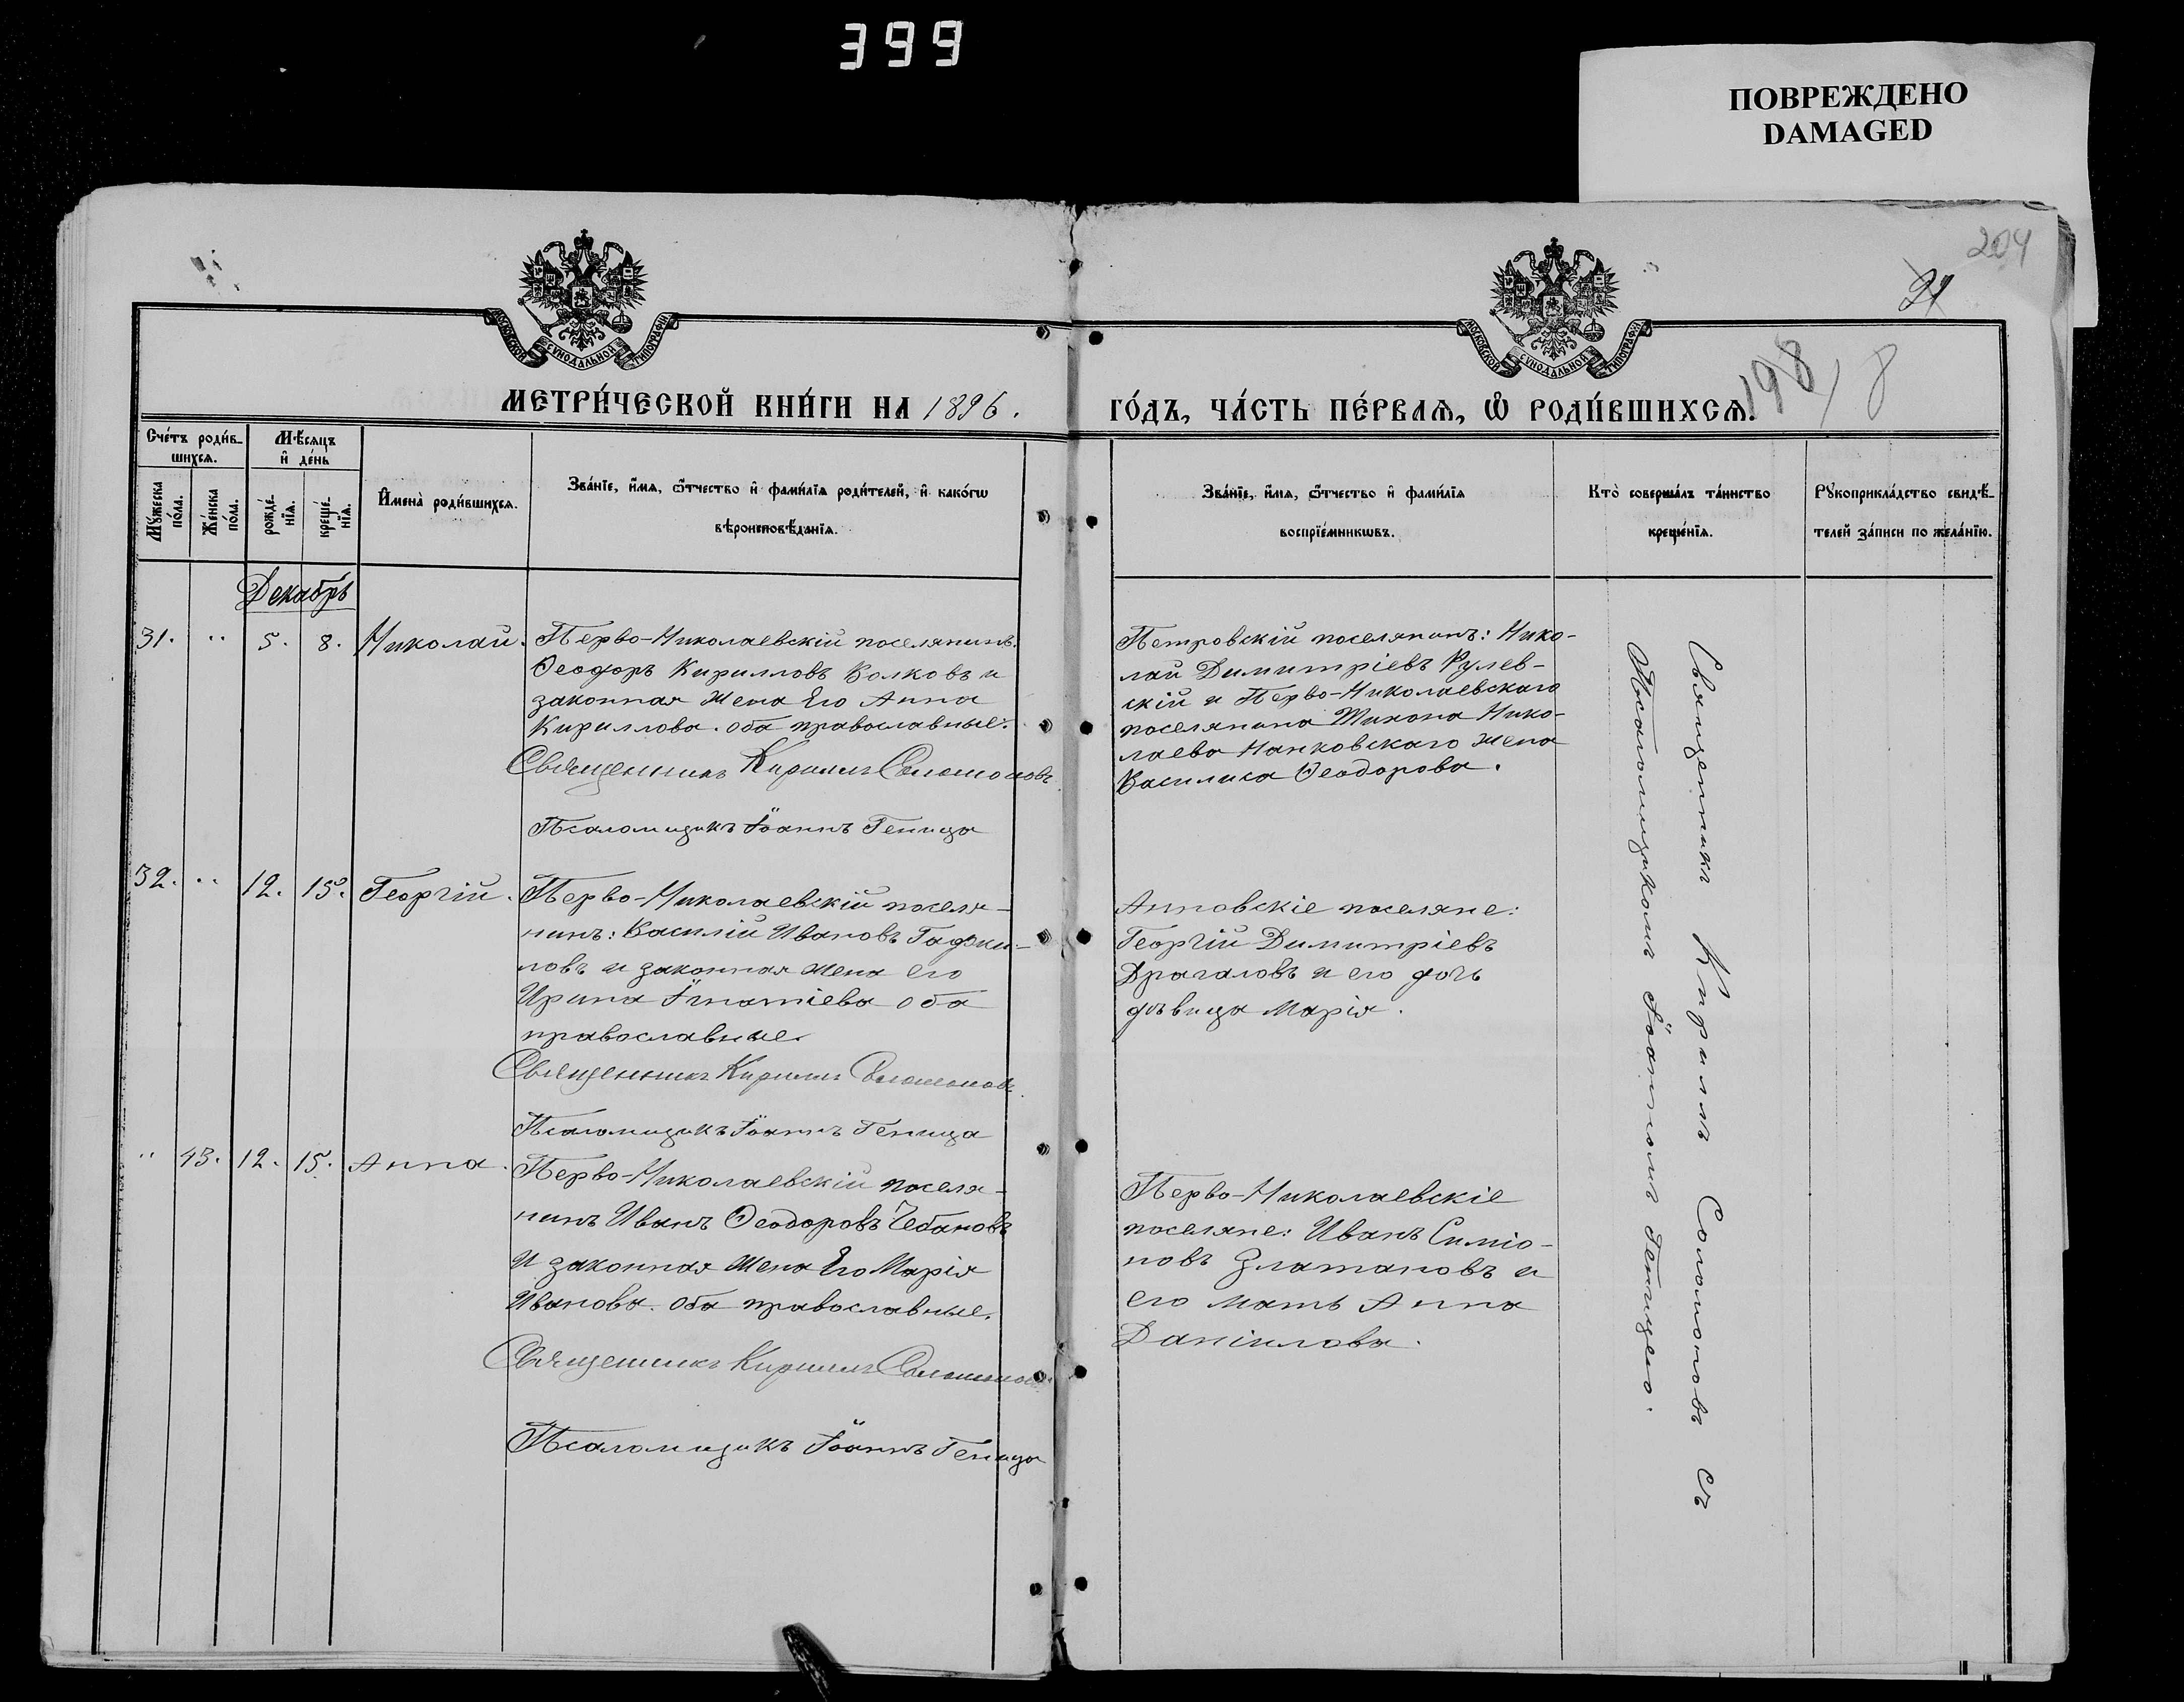 399
ПОВРЕЖДЕНО
DAMAGED
204
21
198
8
МОСКОВСКОЙ СѴНОДАЛЬНОЙ ТИПОГРАФІИ
МОСКОВСКОЙ СѴНОДАЛЬНОЙ ТИПОГРАФІИ
МЕТРИ́ЧЕСКОЙ КНИ́ГИ НА 1896.
ГО́ДЪ, ЧА́СТЬ ПЕ́РВАѦ, Ѽ РОДИ́ВШИХСѦ.
Сче́тъ роди́в-
шихсѧ.
Мѣ́сѧцъ
и҆ де́нь
Мꙋ́жеска
по́ла.
Же́нска
по́ла.
рожде́-
нїѧ.
креще́-
нїѧ.
И҆мена̀ роди́вшихсѧ.
Зва́нїе, и҆́мѧ, ѻ҆́тчество и҆ фами́лїѧ роди́телей, и҆ како́гѡ
вѣроисповѣ́данїѧ.
Зва́нїе, и҆́мѧ, ѻ҆́тчество и҆ фами́лїѧ
воспрїе́мникѡвъ.
Кто̀ соверша́лъ та́инство
креще́нїѧ.
Рꙋкоприкла́дство свидѣ́-
телей за́писи по жела́нїю.
Декабрь
31. " 5. 8. Николай.
Перво-Николаевскій поселянинъ.
Ѳеодоръ Кирилловъ Волковъ и
законная жена Его Анна
Кириллова. оба православные.
Священникъ Кириллъ Соломоновъ
Псаломщикъ Іоаннъ Геница
Петровскій поселянинъ: Нико-
лай Димитріевъ Рулев-
скій и Перво-Николаевскаго
поселянина Тихона Нико-
лаева Нанковскаго жена
Василиса Ѳеодорова.
32. " 12. 15. Георгій.
Перво-Николаевскій поселя-
нинъ: Василій Ивановъ
новъ и законная жена его
Ирина Игнатіева оба
православные.
Священникъ Кириллъ Соломоновъ
Псаломщикъ Іоаннъ Геница
Анновскіе поселяне:
Георгій Димитріевъ
Драгаловъ и его дочь
дѣвица Марія.
" 43. 12. 15. Анна.
Перво-Николаевскій поселя-
нинъ Иванъ Ѳеодоровъ Чебановъ
И законная жена Его Марія
Иванова. Оба православные.
Священникъ Кириллъ Соломоновъ
Псаломщикъ Іоаннъ Геница
Перво-Николаевскіе
поселяне: Иванъ Симіо-
новъ Златановъ и
его мать Анна
Даніилова.
Священникъ Кириллъ Соломоновъ съ
Псаломщикомъ Іоанномъ Геницею.